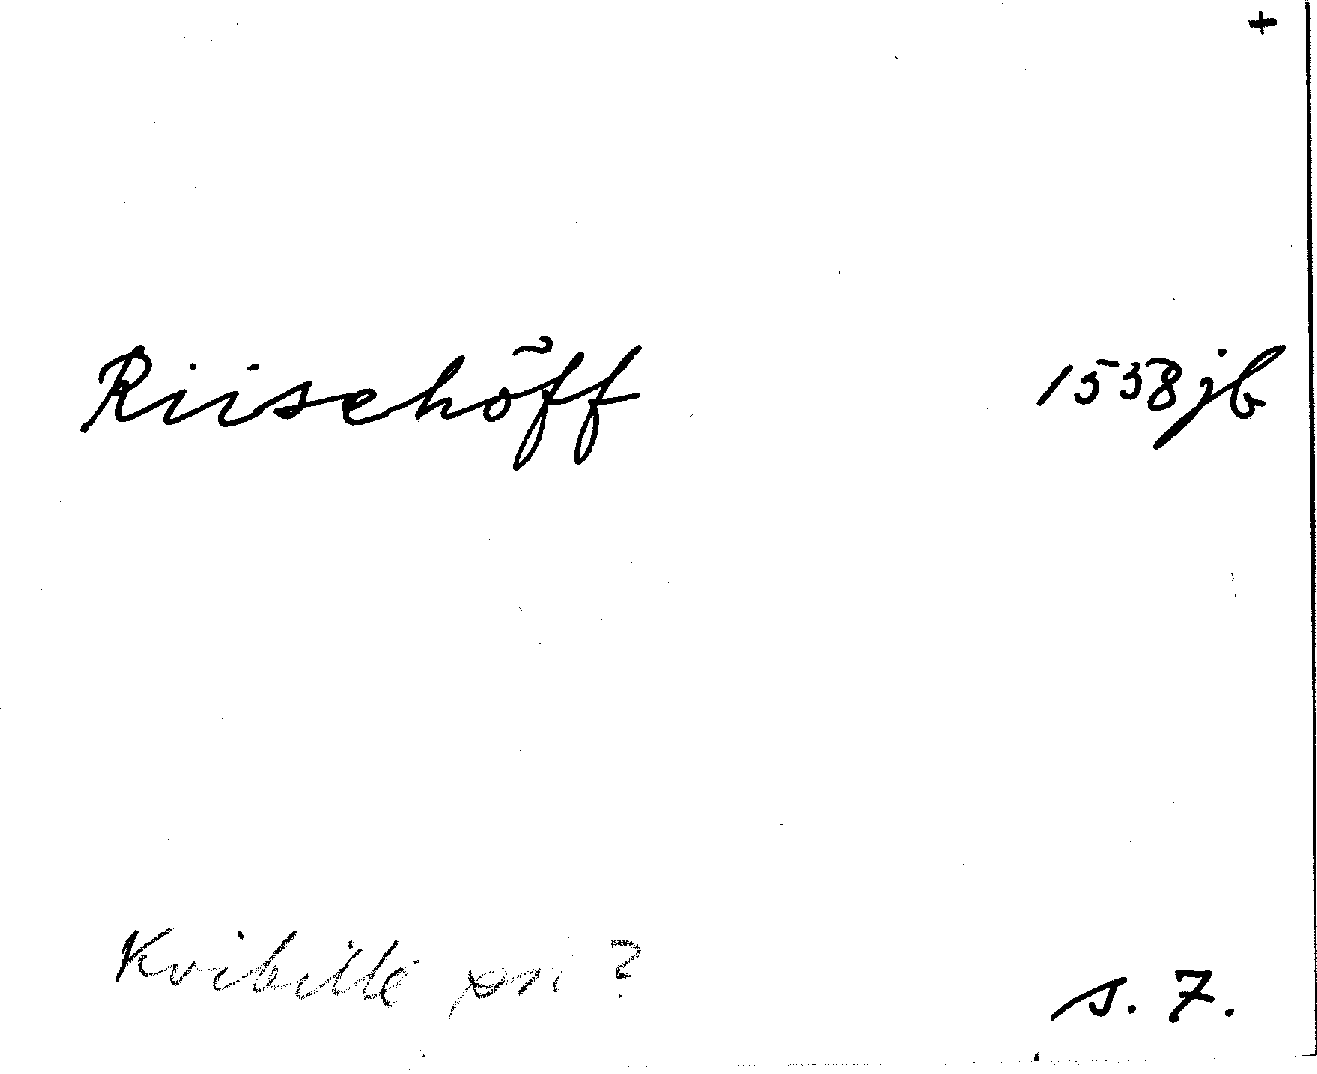 +
Riisehöff 1558 jb
Kvibille sn ?
s. 7.